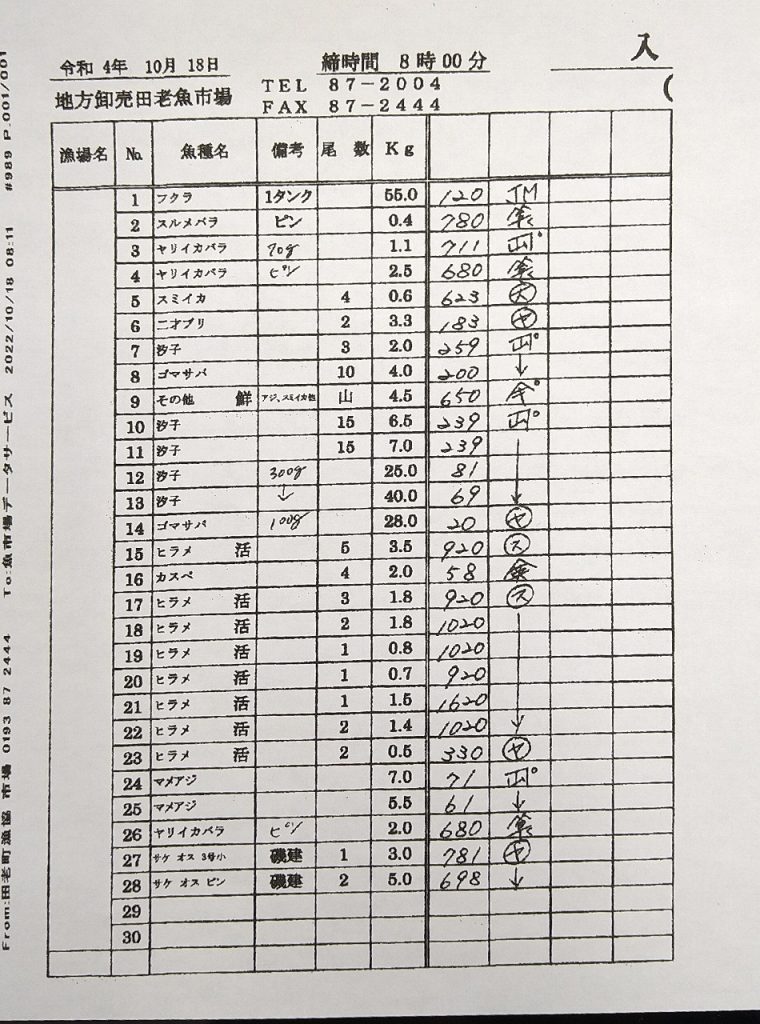 入
令和 4年 10月 18日
締時間 8時00分
地方卸売田老魚市場
TEL 87-2004
FAX 87-2444
(
漁場名 No. 魚種名 備考 尾 数 Kg
1 フクラ 1タンク 55.0 120 JM
2 スルメバラ ピン 0.4 780
3 ヤリイカバラ 70g 1.1 711
4 ヤリイカバラ ピン 2.5 680
5 スミイカ 4 0.6 623
6 二才ブリ 2 3.3 183 ヤ
7 汐子 3 2.0 259
8 ゴマサバ 10 4.0 200 ↓
9 その他 鮮 アジ、スミイカ他 山 4.5 650
10 汐子 15 6.5 239
11 汐子 15 7.0 239
12 汐子 300g 25.0 81
13 汐子 ↓ 40.0 69 ↓
14 ゴマサバ 100g 28.0 20 ヤ
15 ヒラメ 活 5 3.5 920 ス
16 カスペ 4 2.0 58
17 ヒラメ 活 3 1.8 920 ス
18 ヒラメ 活 2 1.8 1020
19 ヒラメ 活 1 0.8 1020
20 ヒラメ 活 1 0.7 920
21 ヒラメ 活 1 1.5 1620
22 ヒラメ 活 2 1.4 1020 ↓
23 ヒラメ 活 2 0.5 330 ヤ
24 マメアジ 7.0 71
25 マメアジ 5.5 61 ↓
26 ヤリイカバラ ピン 2.0 680
27 サケ オス 3号小 磯建 1 3.0 781 ヤ
28 サケ オス ピン 磯建 2 5.0 698 ↓
29
30
From:田老町漁協 市場 0193 87 2444 To:魚市場データサービス 2022/10/18 08:11 #989 P.001/001